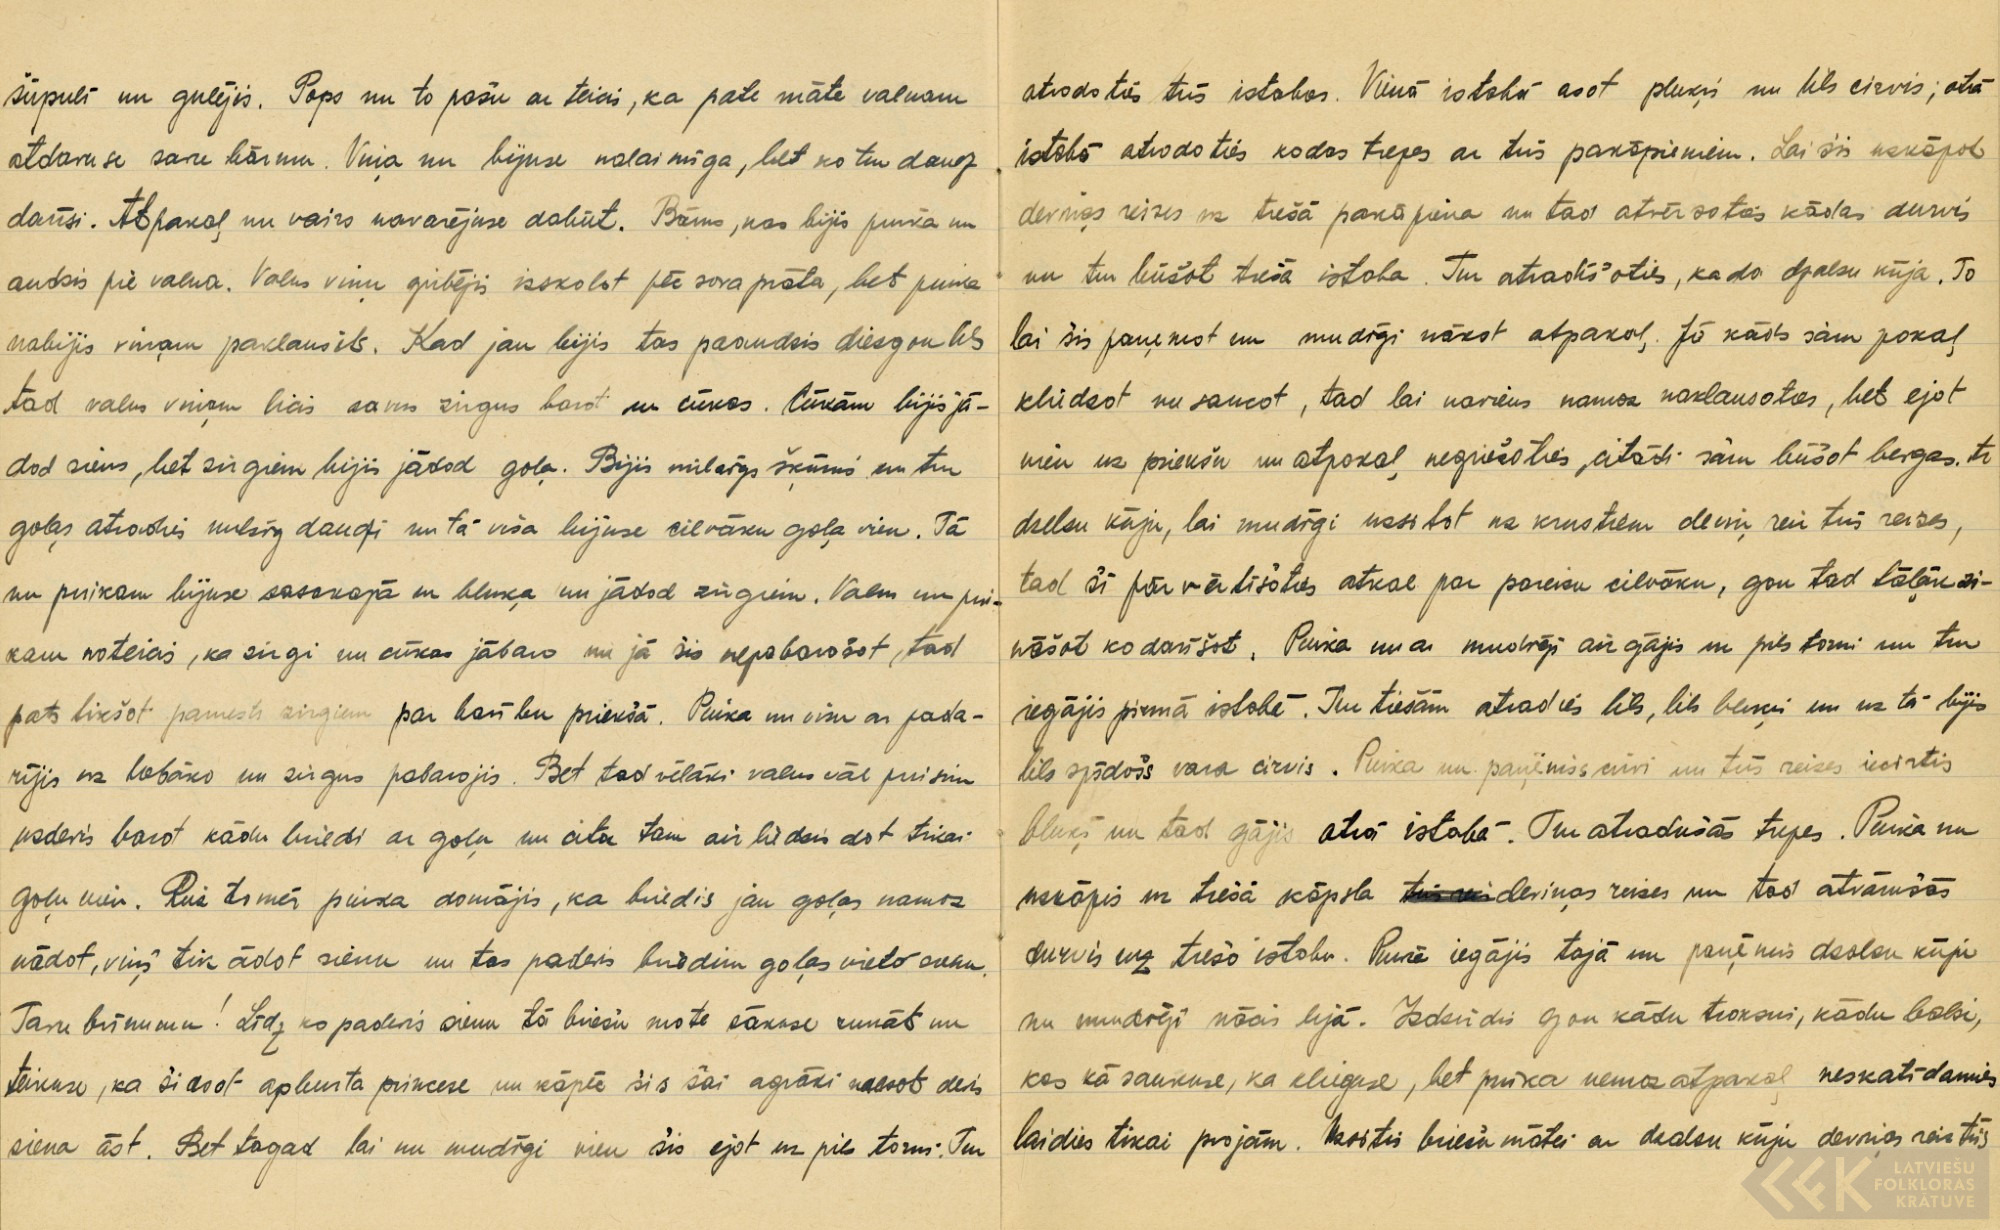 šūpulī un gulējis. Paps nu to pašu ar teicis, ka pate māte valnam
atdavuse save bārnu. Viņa nu bijuse nalaimīga, bet ko tu daudz
darīsi. Atpakaļ nu vairs navarējuse dabūt. Bārns, kas bijis puika un
audzis pie valna. Valns viņu gribējis izskolot pēc sova prāta, bet puika
nabijis viņam paklausīts. Kad jau bijis tas paaudzis diezgon lils
tad valns viņam licis savus zirgus barot un cūkas. Cūkām bijis jā-
dod siens, bet zirgiem bijis jādod goļa. Bijis milzīgs šķūnis un tur
goļas atradies milzīg daudzi un tā visa bijuse cilvāku goļa vien. Tā
nu puikam bijuse sasakapā uz bluķa un jādod zirgiem. Valns nu pui-
kam noteicis, ka zirgi un cūkas jābaro nu jā šis nepabarošot, tad
pats tikšot pamests zirgiem par barību priekšā. Puika nu visu ar pada-
rījis uz labāko un zirgus pabarojis. Bet tad vēlāki valns vāl puisim
uzdevis barot kādu briedi ar goļu un cita tam aizliedzis dot tikai
goļu vien. Pēc tomēr puika domājis, ka briedis jau goļas namoz
nādot, viņš tik ādot sienu un tas padevis briedim goļas vieto sienu.
Tavu brīnumu! Līdz ko padevis sienu tā briežu mote sākuse runāt un
teikuse, ka šī asot apburta princese un kāpēc šis šai agrāki naesot devis
siena āst. Bet tagad lai nu mudīgi vien šis ejot uz pils torni. Tur
atrodoties trīs istabas. Vienā istabā asot pluķis un lils cirvis; otrā
istabā atrodoties kādas trepes ar trīs pakāpieniem. Lai šis uzkāpot
deviņas reizes uz trešā pakāpiena un tad atvērsoties kādas durvis
un tur būšot trešā istaba. Tur atradīšoties, kāda dzelzu kūja. To
lai šis paņemot un mudīgi nākot atpakaļ. Jo kāds šām pakaļ
kliedzot un saucot, tad lai naviens namoz naklausoties, bet ejot
vien uz priekšu un atpakaļ negriežoties, citādi šām būšot beigas. Ar
dzelzu kūju, lai mudīgi uzsitot uz krustiem deviņ reiz trīs reizes,
tad šī pārvērtīšoties atkal par pareizu cilvāku, gon tad tālāk zi-
nāšot ko darīšot. Puika nu ar mudrīgi aizgājis uz pils torni un tur
iegājis pirmā istabā. Tur tiešām atradies lils, lils bluķis un uz tā bijis
lils spīdošs vara cirvis. Puika nu paņēmis cirvi un trīs reizes iecirtis
bluķī un tad gājis otrā istabā. Tur atradušās trepes. Puika nu
uzkāpis uz trešā kāpsla deviņas reizes un tad atvārušās
durvis uz trešo istabu. Puika iegājis tajā un paņēmis dzelzu kūju
nu mudrīgi nācis lejā. Izdzirdis gon kādu troksni, kādu balsi,
kas kā saukuse, ka klieguse, bet puika nemoz atpakaļ neskatīdamies
laidies tikai projām. Uzsitis briežu mātei ar dzelzu kūju deviņas reiz trīs
LATVIEŠU
FOLKLORAS
KRĀTUVE